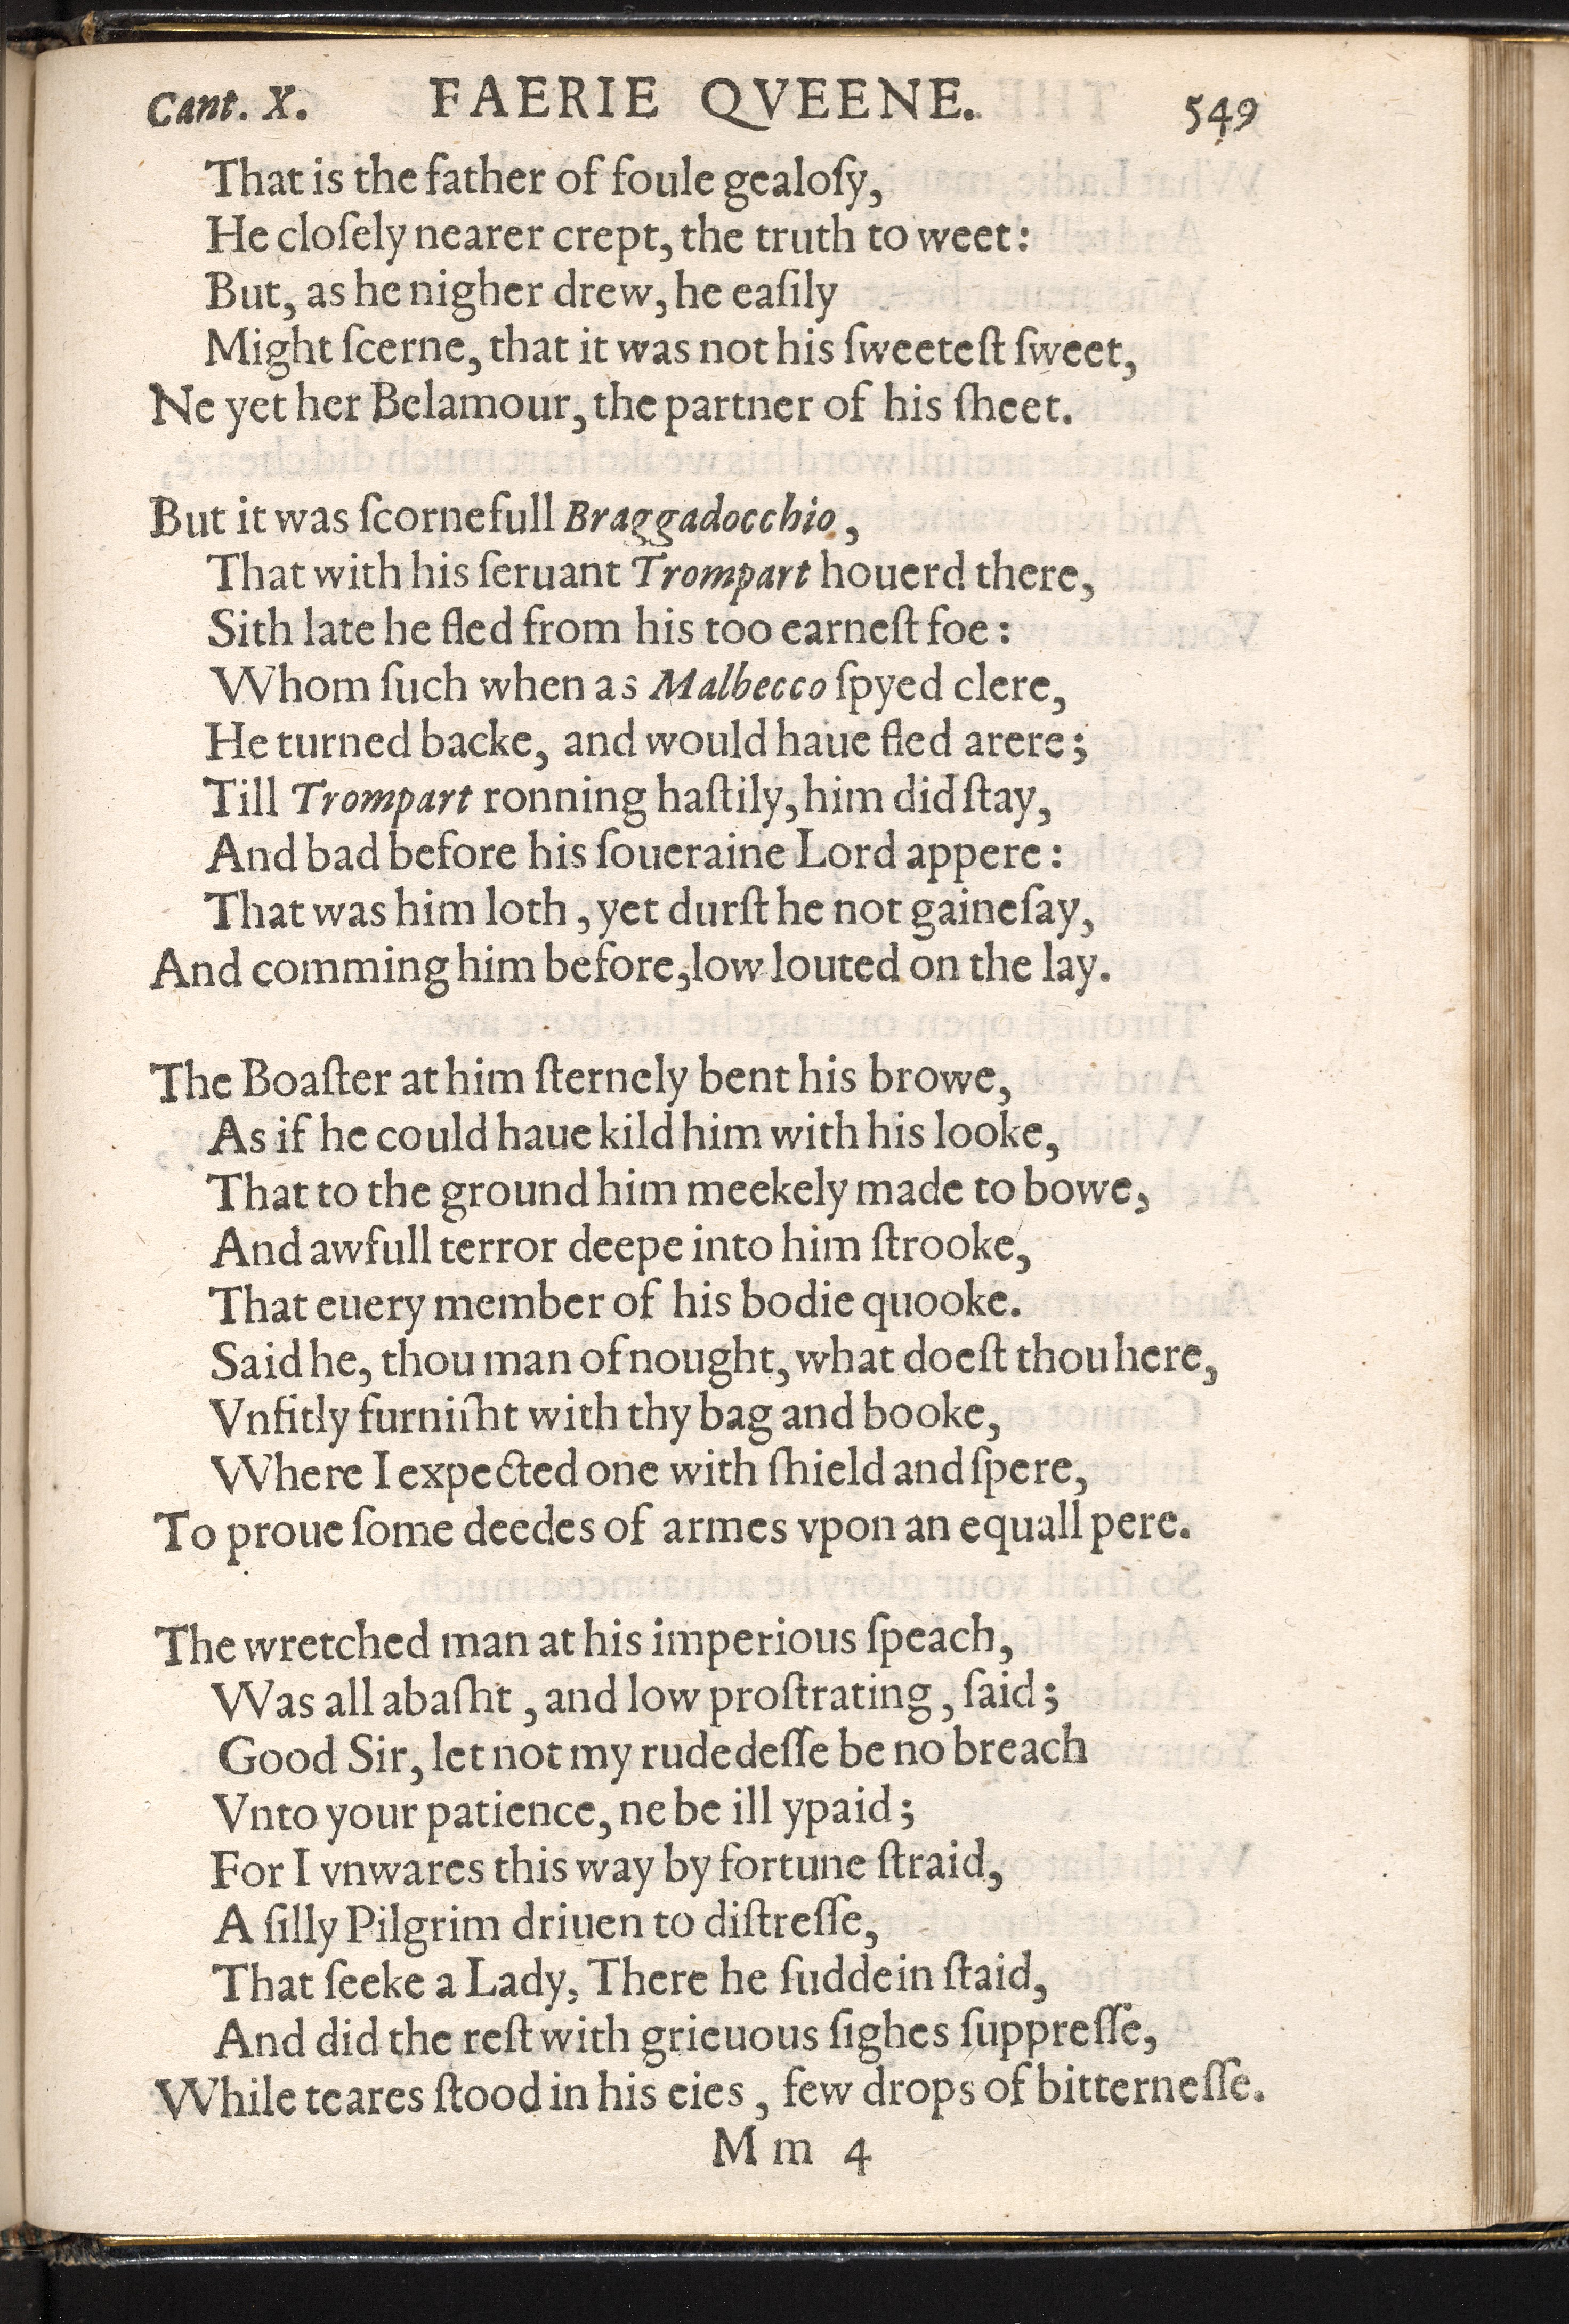 Cant. X. FAERIE QVEENE. 549
That is the father of foule gealoſy,
He cloſely nearer crept, the truth to weet:
But, as he nigher drew, he eaſily
Might ſcerne, that it was not his ſweeteſt ſweet,
Ne yet her Belamour, the partner of his ſheet.
But it was ſcornefull Braggadocchio,
That with his ſeruant Trompart houerd there,
Sith late he fled from his too earneſt foe:
Whom ſuch when as Malbecco ſpyed clere,
He turned backe, and would haue fled arere;
Till Trompart ronning haſtily, him did ſtay,
And bad before his ſoueraine Lord appere:
That was him loth, yet durſt he not gaineſay,
And comming him before, low louted on the lay.
The Boaſter at him ſternely bent his browe,
As if he could haue kild him with his looke,
That to the ground him meekely made to bowe,
And awfull terror deepe into him ſtrooke,
That euery member of his bodie quooke.
Said he, thou man of nought, what doeſt thou here,
Vnfitly furniſht with thy bag and booke,
Where I expected one with ſhield and ſpere,
To proue ſome deedes of armes vpon an equall pere.
The wretched man at his imperious ſpeach,
Was all abaſht, and low proſtrating, ſaid;
Good Sir, let not my rudedeſſe be no breach
Vnto your patience, ne be ill ypaid;
For I vnwares this way by fortune ſtraid,
A ſilly Pilgrim driuen to diſtreſſe,
That ſeeke a Lady, There he ſuddein ſtaid,
And did the reſt with grieuous ſighes ſuppreſſe,
While teares ſtood in his eies, few drops of bitterneſſe.
Mm 4